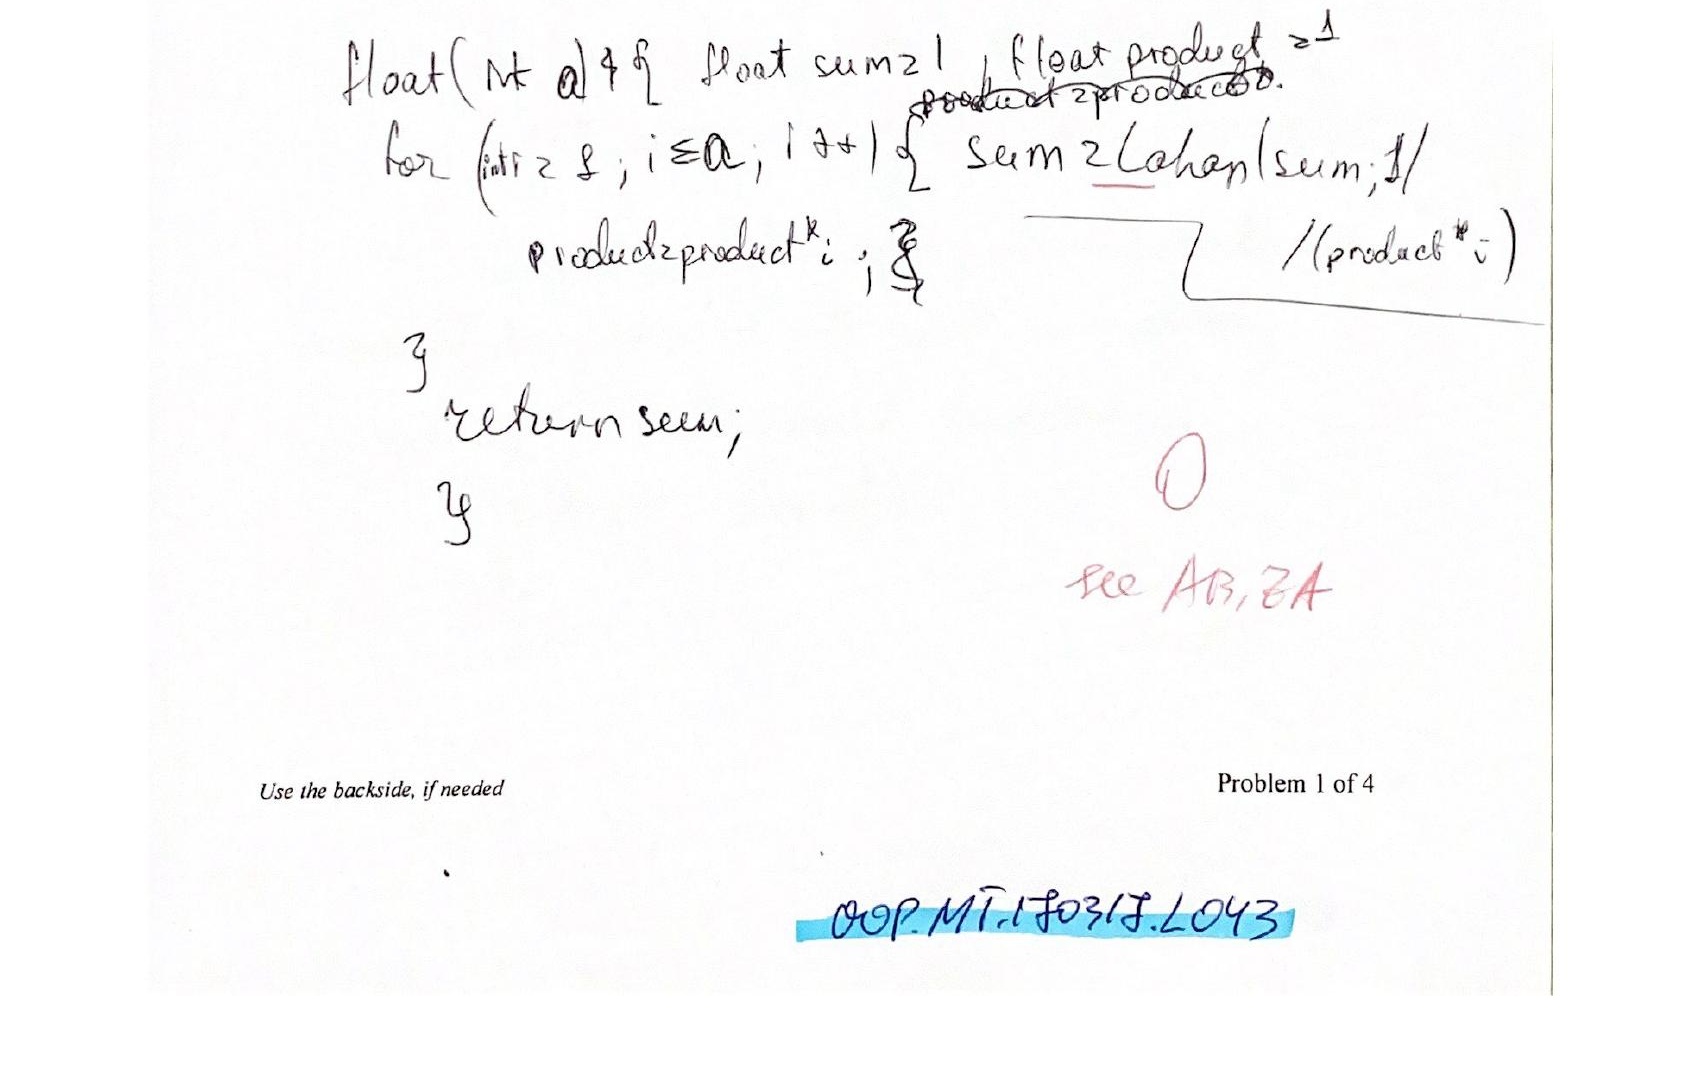 float(int a){ float sum=1, float product=1
for (int i = 1; i≤a; i++) { sum = Cahan(sum; 1/
product=product*i; } /(product*i)
}
return sum;
}
0
see AB, ZA
Use the backside, if needed
Problem 1 of 4
OOP.MT.170317.L043